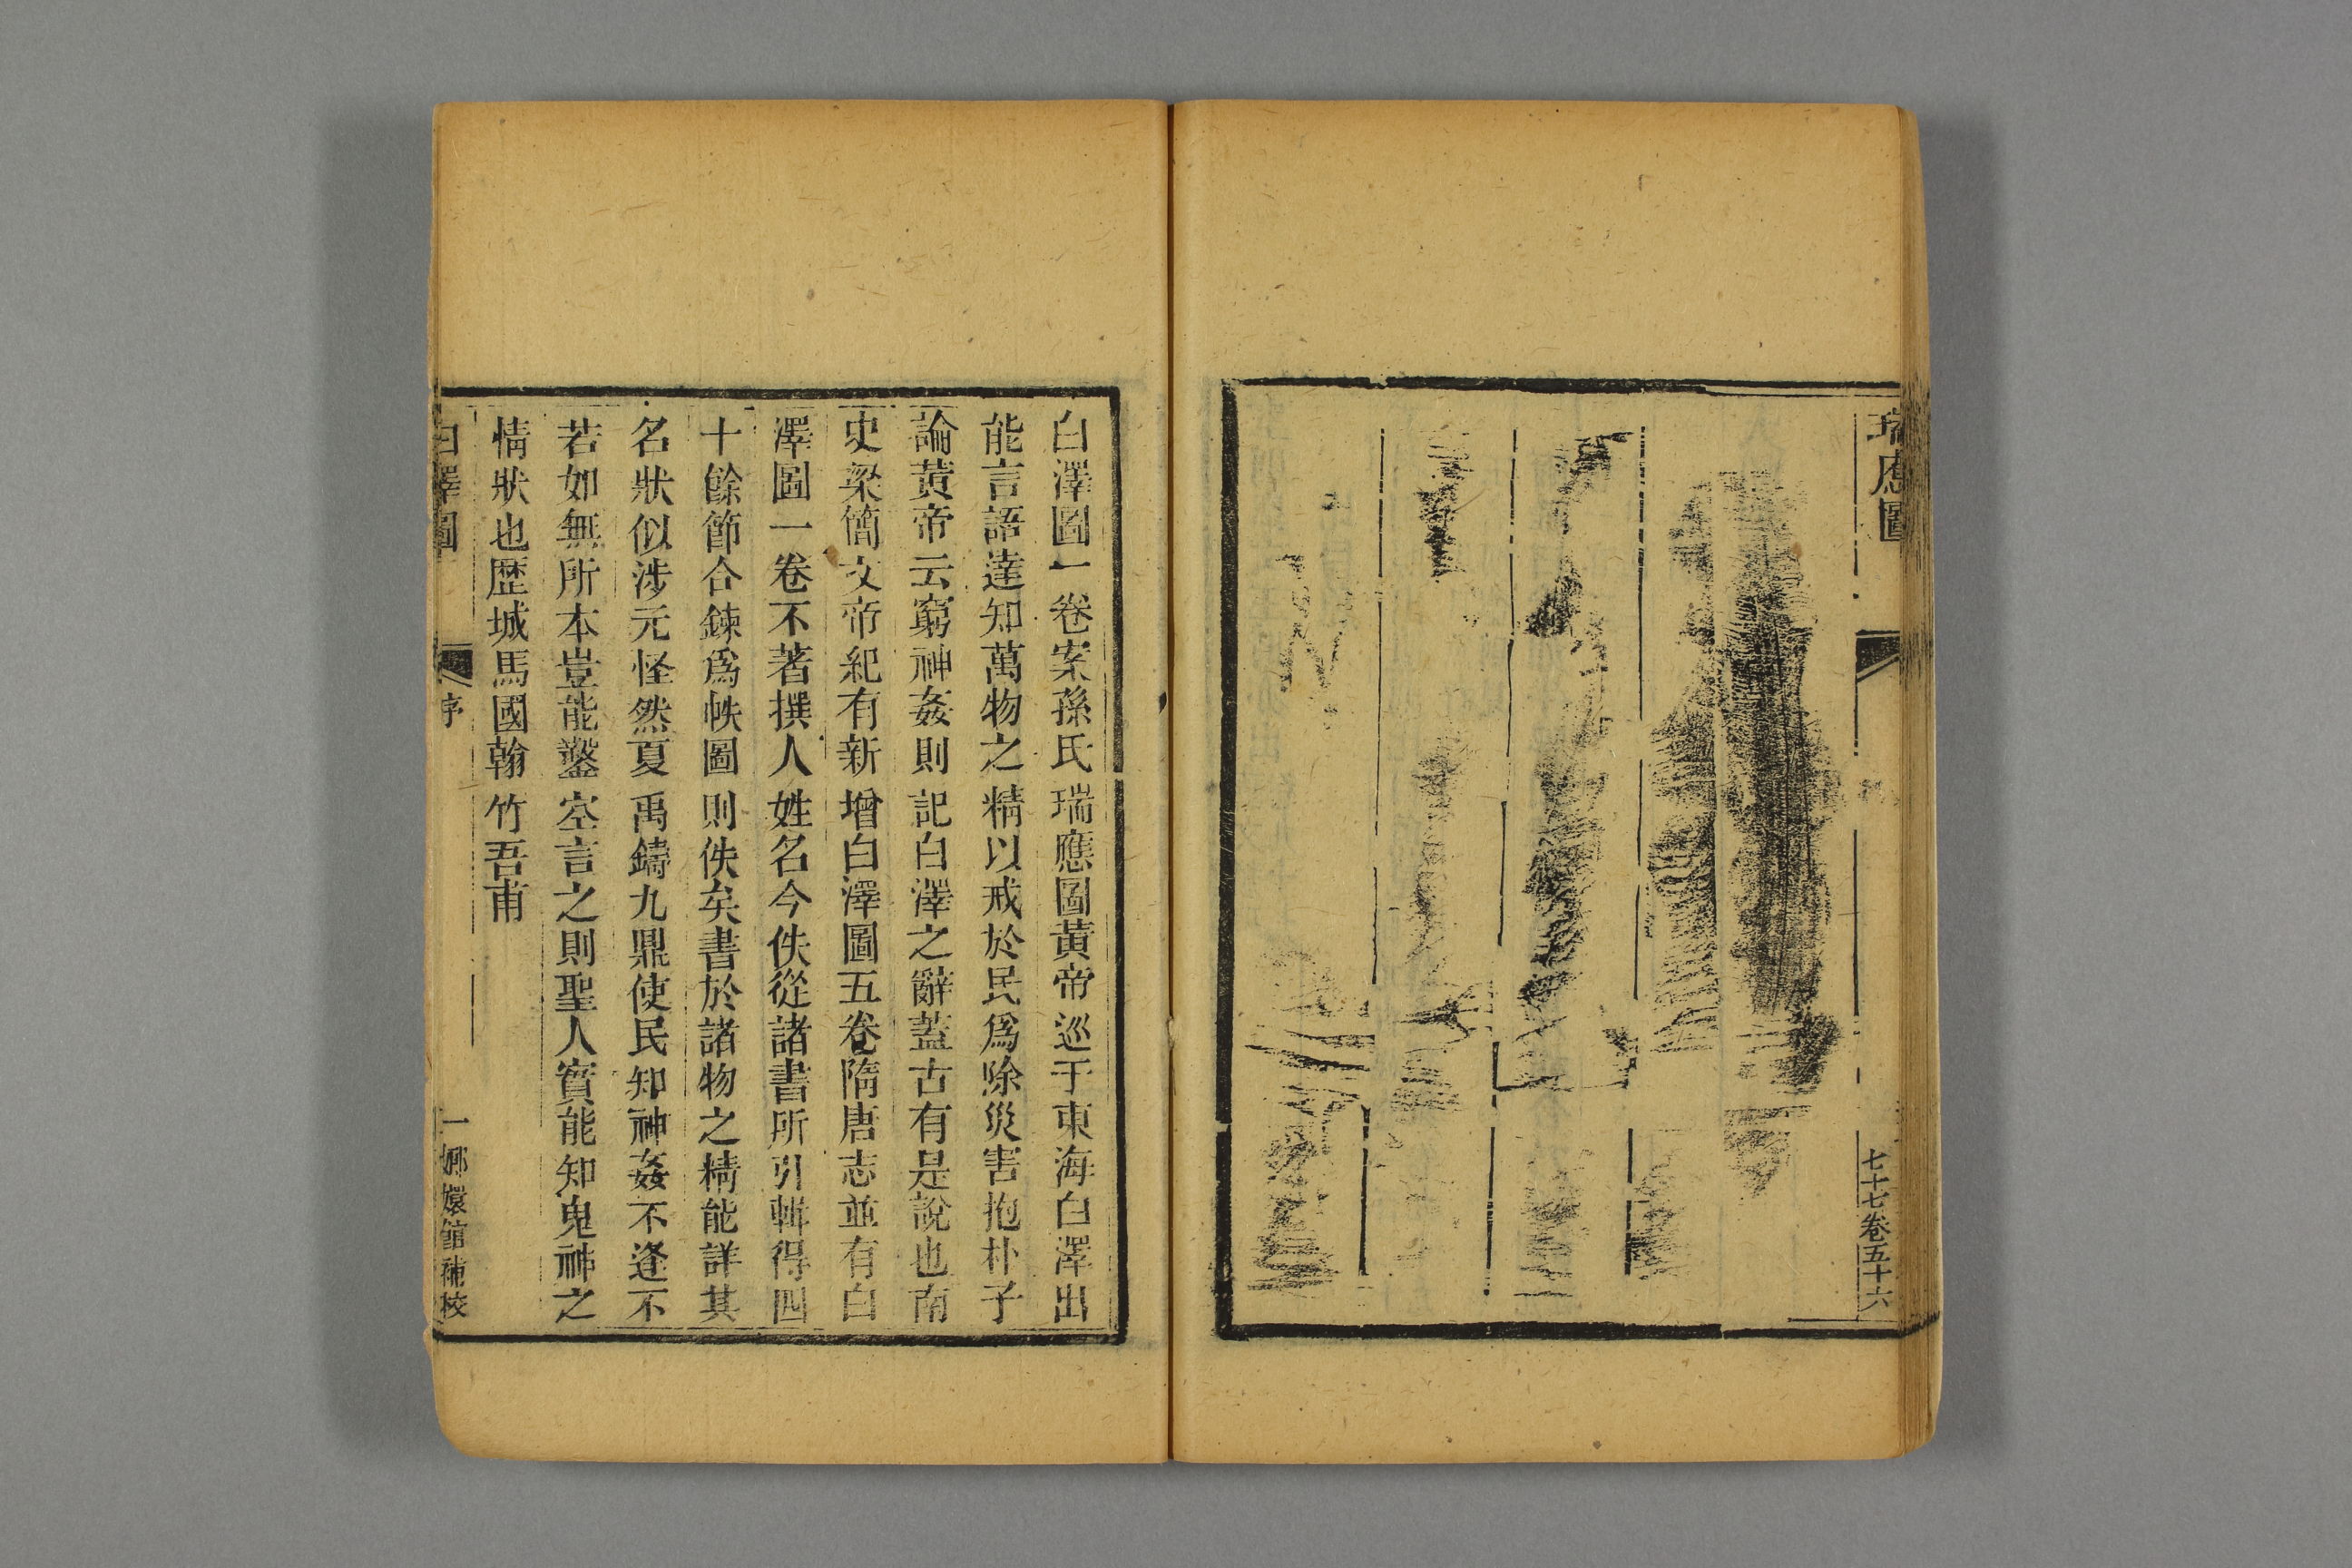 瑞應圖
七十七卷五十六
白澤圖一卷案孫氏瑞應圖黃帝巡于東海白澤出
能言語達知萬物之精以戒於民爲除災害抱朴子
論黃帝云窮神姦則記白澤之辭蓋古有是說也南
史梁簡文帝紀有新增白澤圖五卷隋唐志並有白
澤圖一卷不著撰人姓名今佚從諸書所引輯得四
十餘節合鍊爲帙圖則佚矣書於諸物之精能詳其
名狀似涉元怪然夏禹鑄九鼎使民知神姦不逢不
若如無所本豈能鑿空言之則聖人實能知鬼神之
情狀也歷城馬國翰竹吾甫
白澤圖
序
一嫏嬛館補校